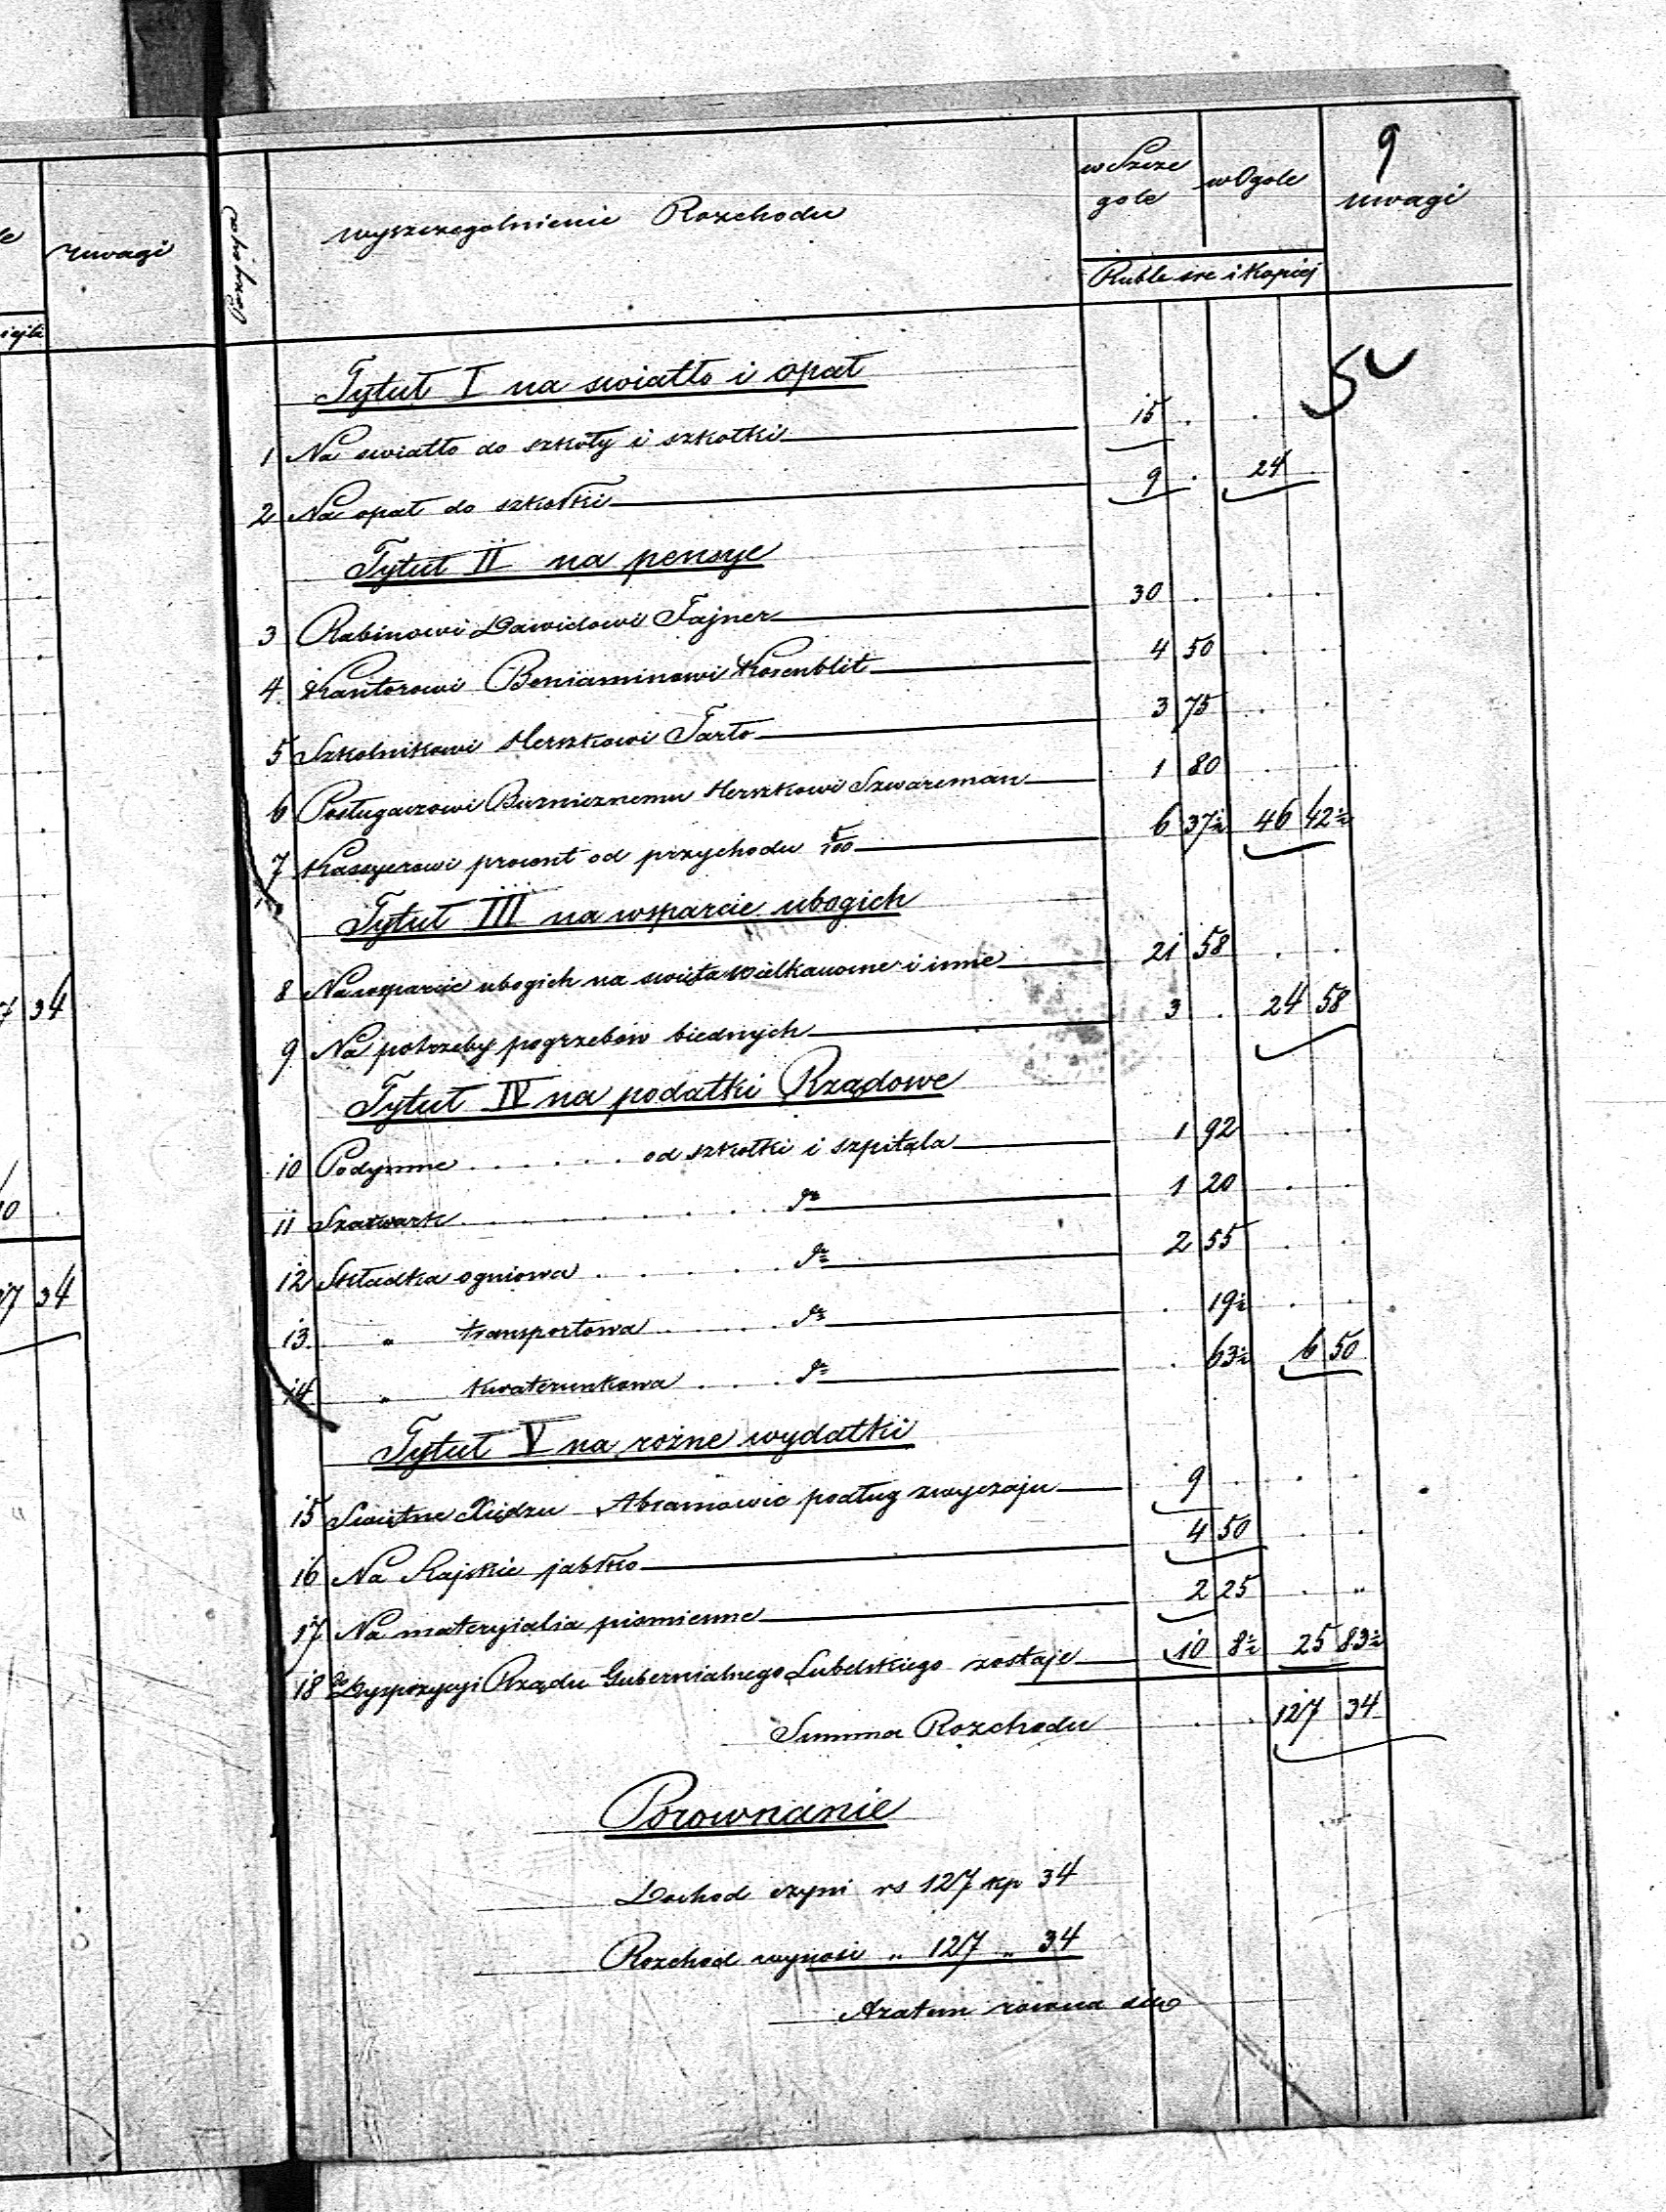 9
uwagi
wyszczegolnienie Rozchodu
w Szcze
gole
w Ogole
uwagi
Ruble sre i Kopiej
Tytuł I na swiatło i opał
1 Na swiatło do szkoły i szkołki 15 . .
2 Na opał do szkołki 9 . 24
Tytuł II na pensye
3 Rabinowi Dawidowi Fajner 30 . . .
4 Kantorowi Beniaminowi Rosenblit 4 50 . .
5 Szkolnikowi Herszkowi Tarło 3 75 . .
6 Posługaczowi Buznicznemu Herszkowi Szwarcman 1 80 . .
7 Kassyerowi procent od przychodu 5/100 6 37½ 46 42½
Tytuł III na wsparcie ubogich
8 Na wsparcie ubogich na swięta wielkanocne i inne 21 58 . .
9 Na potrzeby pogrzebów biednych 3 . 24 58
Tytuł IV na podatki Rządowe
10 Podymne . . . . . . od szkołki i szpitala 1 92 . .
11 Szarwark . . . . . . . do 1 20 . .
12 Składka ogniowa . . . . . do 2 55 . .
13 " transportowa . . . . . do . 19½ . .
14 " kwaterunkowa . . . . do . 63½ 6 50
Tytuł V na rożne wydatki
15 Swiętne Xiędzu Abramowic podług zwyczaju 9 . . .
16 Na Rajskie jabłko 4 50 . .
17 Na materyialia pismienne 2 25 . "
18 Do Dyspozycyi Rządu Gubernialnego Lubelskiego zostaje 10 8½ 25 83½
Summa Rozchodu . . 127 34
Porownanie
Dochod czyni rs 127 kp 34
Rozchod wynosi " 127 " 34
Azatem rowna się
34
34